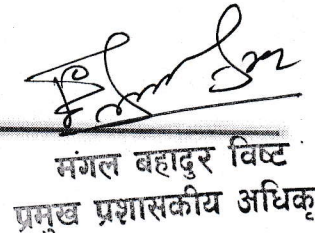 मंगल बहादुर विष्ट
प्रमुख प्रशासकीय अधिकृ